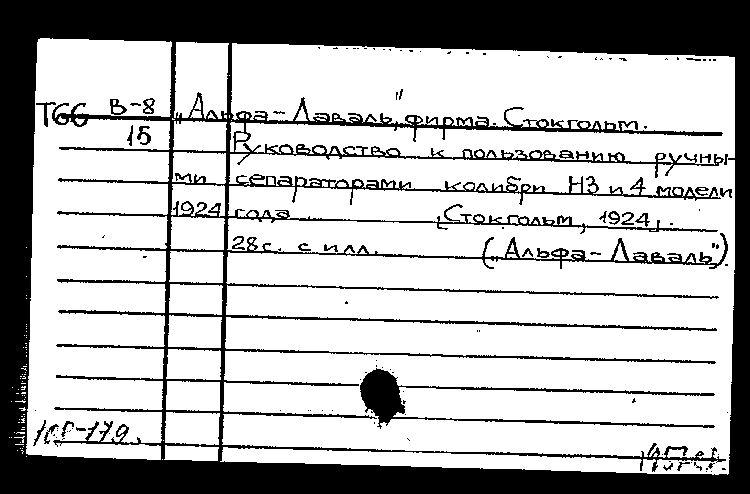 TGG В-8 „Альфа-Лаваль", фирма. Стокгольм.
15 Руководство к пользованию ручны-
ми сепараторами колибри Н3 и 4 модели
1924 года [Стокгольм, 1924].
28с. с илл. („Альфа-Лаваль").
108-179.